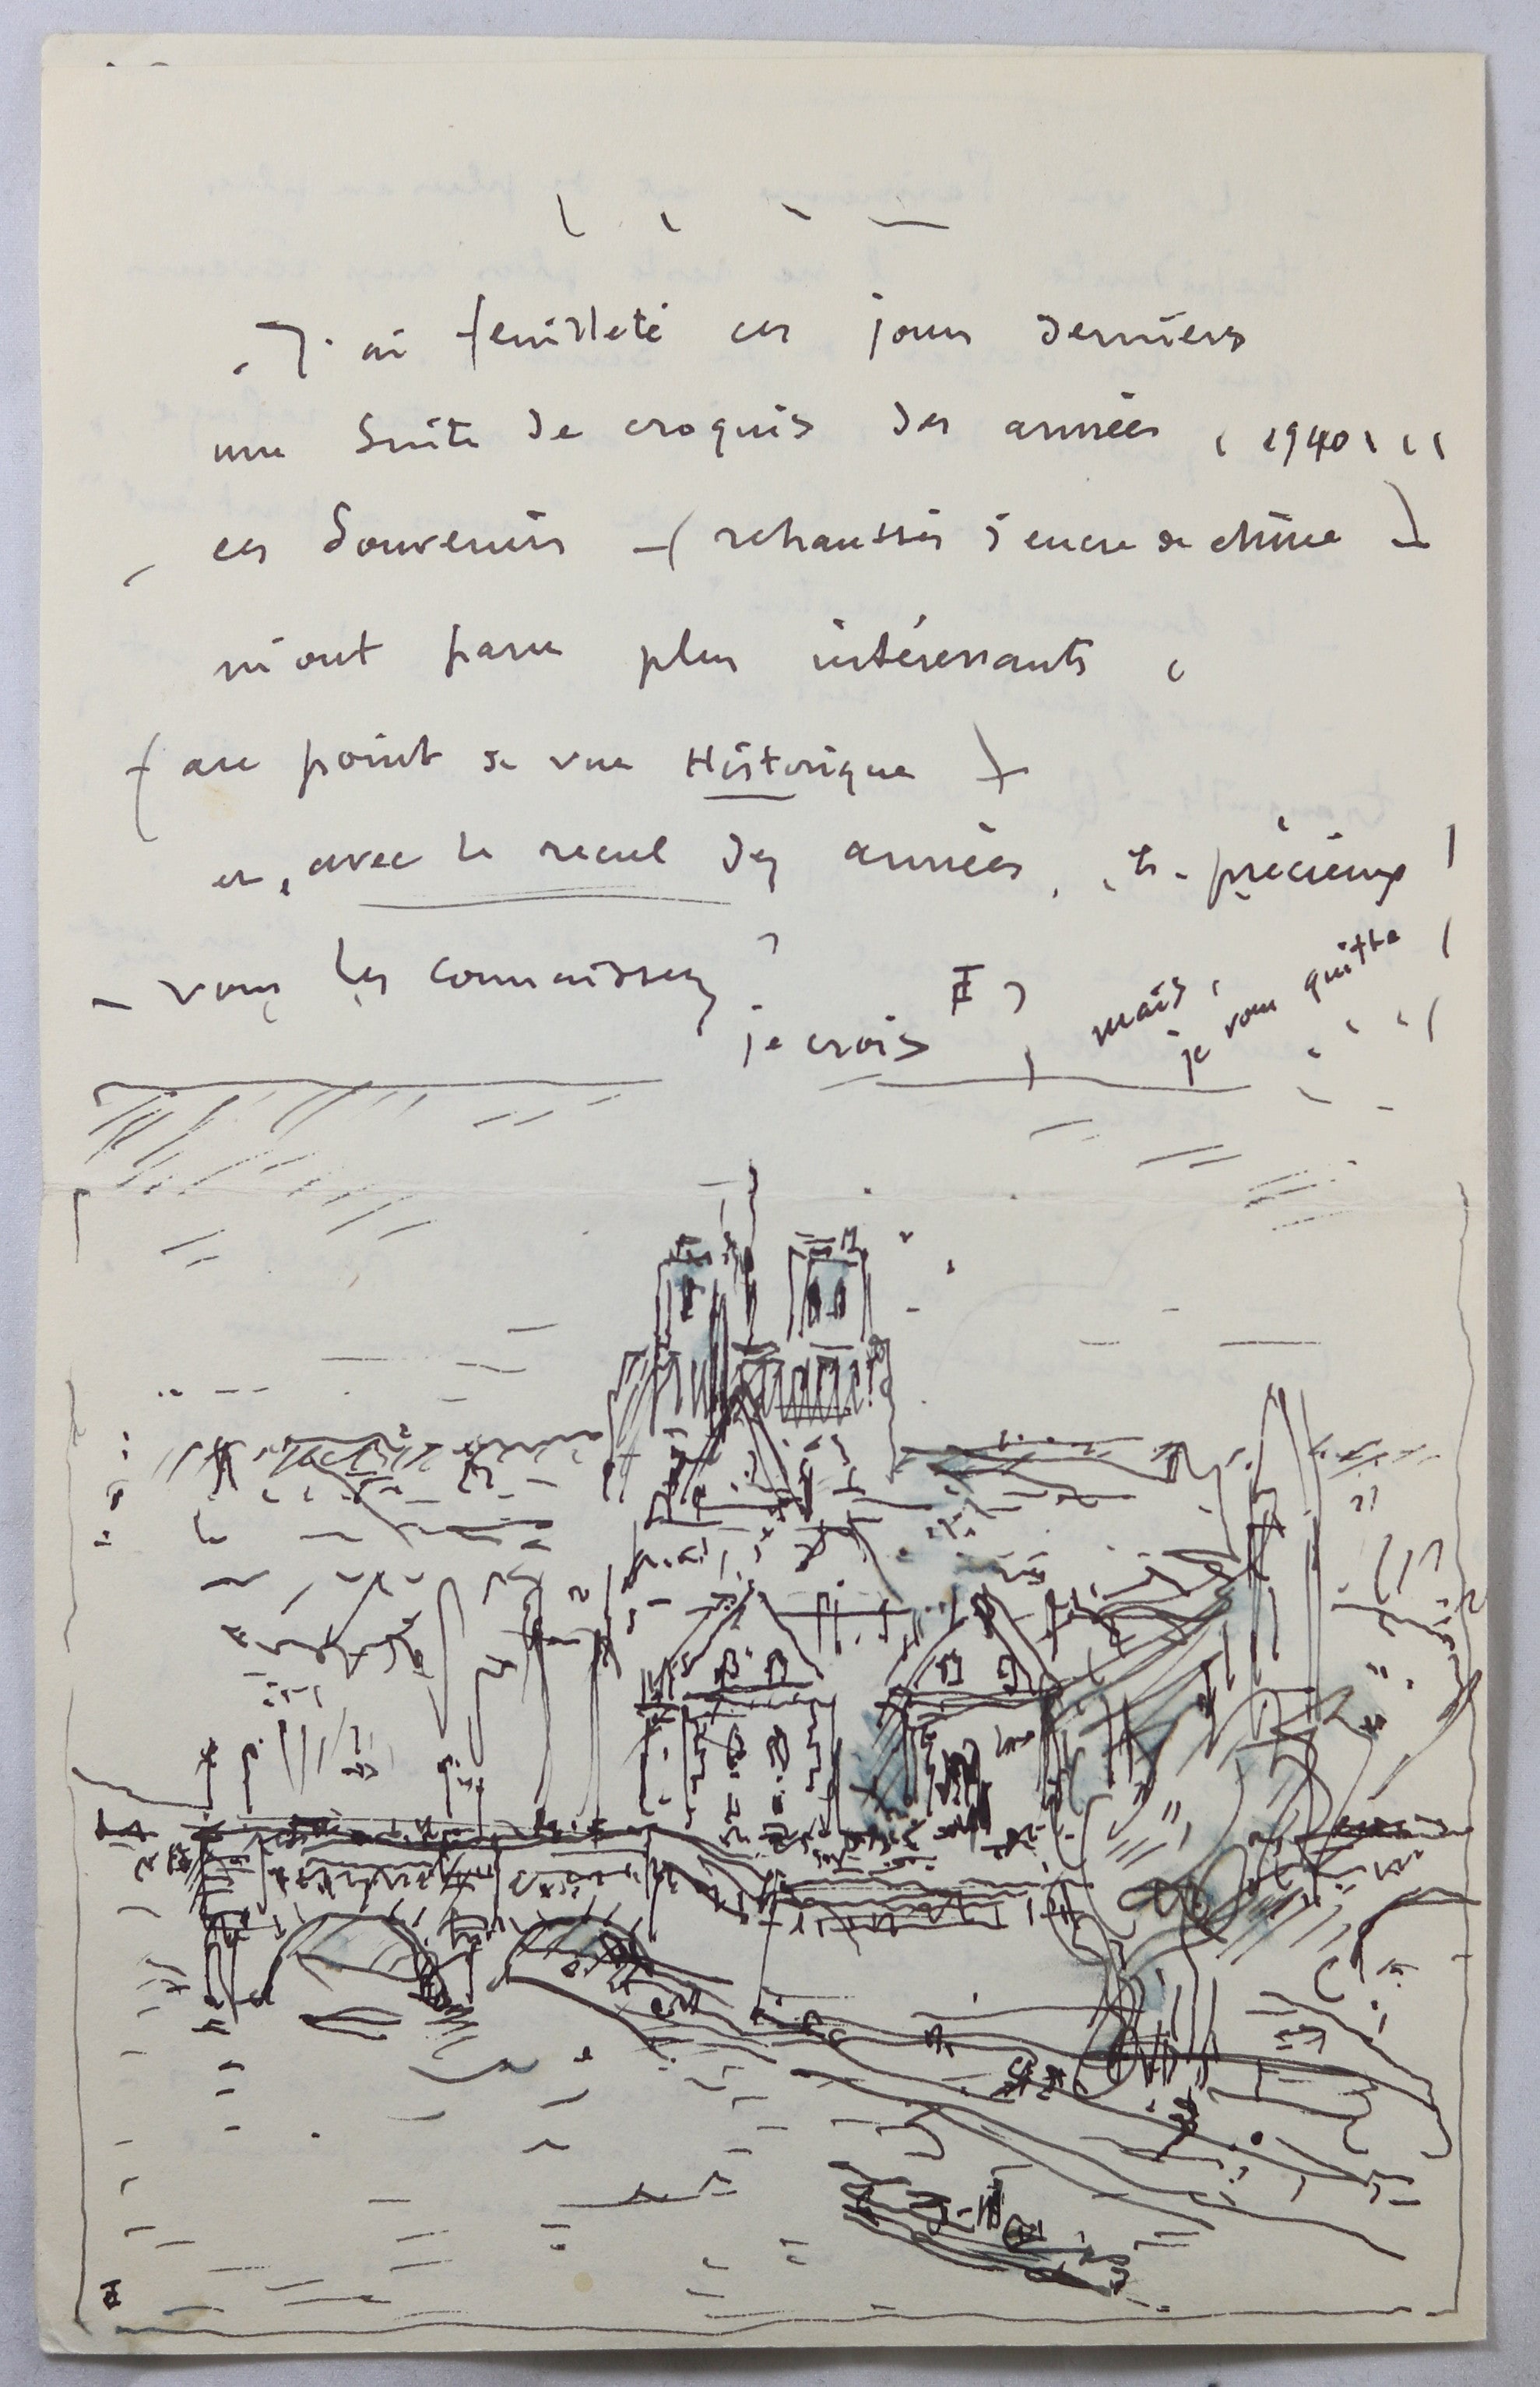 J'ai feuilleté ces jours derniers
une suite de croquis des années, 1940...
ces souvenirs -(rehaussés d'encre de chine)-
m'ont paru plus intéressants,
(au point de vue Historique)
et, avec le recul des années, , ts. précieux !
- vous les connaissez ?
je crois
mais,
je vous quitte